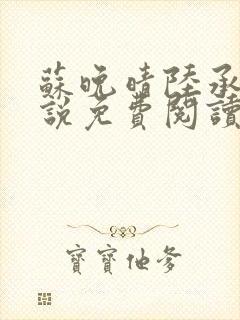 蘇晚晴陸承
說免費閱讀
寶寶仙爹